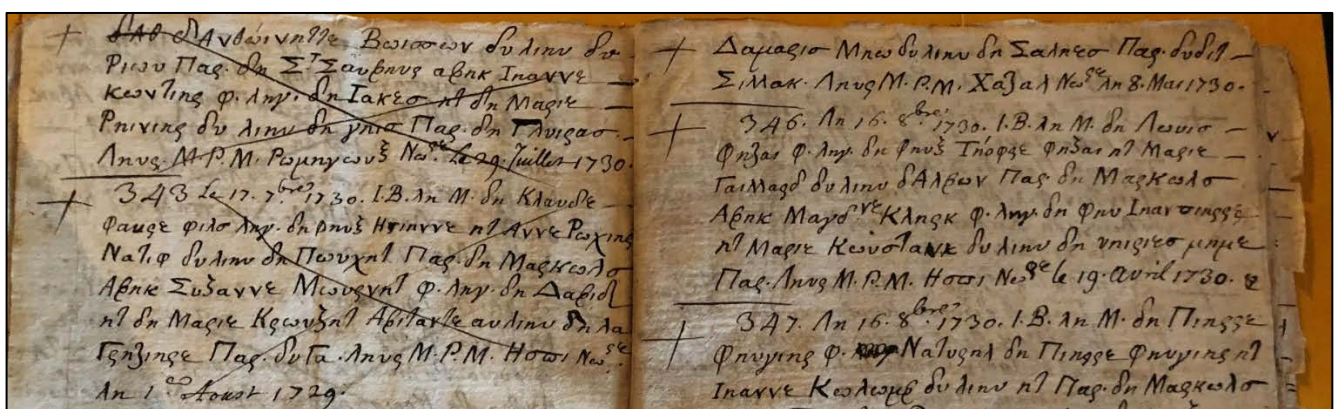 + δ'Ανθωινηττε Βωισσων δυ λιηυ δυ
Ριου Παρ. δη Σᵀ Σαυβηυρ αβηκ Ιηαννε
Κωντιηρ φ. ληγ. δη Ιακεσ ητ δη Μαριε
Ρηινιηρ δυ λιηυ δη γηισ Παρ. δη Γλυιρασ
Ληυρ. Μ.Ρ.Μ. Ρωμηγωυξ Νωʳᵉ Le 29. Juillet 1730.
+ 343 Le 17. 7ᵇʳᵉ 1730. I.B. λη Μ. δη Κλαυδε
Φαυρε φιλσ ληγ. δη φηυξ Ητιηννε ητ Αννε Ρωχιηρ
Νατιφ δυ λιηυ δη Πωυχητ Παρ. δη Μαρκωλσ
Αβηκ Συζαννε Μιωυρνητ φ. ληγ. δη Δαβιδ
ητ δη Μαριε Κρωυζητ Αβιταντε αυ λιηυ δη λα
Γρηζιηρε Παρ. δυ Γα. Ληυρ Μ.Ρ.Μ. Νωʳᵉ
λη 1ᵉʳ Aoust 1729.
+ Δαμαρισ Μηω δυ λιηυ δη Σαληεσ Παρ. δυδιτ
Σ. Μακ. Ληυρ Μ.Ρ.Μ. Χαζαλ Νωʳᵉ λη 8. Mai 1730.
+ 346. λη 16. 8ᵇʳᵉ 1730. I.B. λη Μ. δη Λωυισ
Φηζαι φ. ληγ. δη φηυξ Πιηρρε Φηζαι ητ Μαριε
Γαιμαρδ δυ λιηυ δ'Αλβων Παρ. δη Μαρκωλσ
Αβηκ Μαγδⁿᵉ Κληρκ φ. ληγ. δη φηυ Ιηαν πιηρρε
ητ Μαριε Κωυστανκ δυ λιηυ δη υηιριεσ μημε
Παρ. Ληυρ Μ.Ρ.Μ. Νωʳᵉ le 19. avril 1730.
+ 347. λη 16. 8ᵇʳᵉ 1730. I.B. λη Μ. δη Πιηρρε
Φηυγιηρ φ. Νατυρηλ δη Πιηρρε Φηυγιηρ ητ
Ιηαννε Κωλωμβ δυ λιηυ ητ Παρ. δη Μαρκωλσ